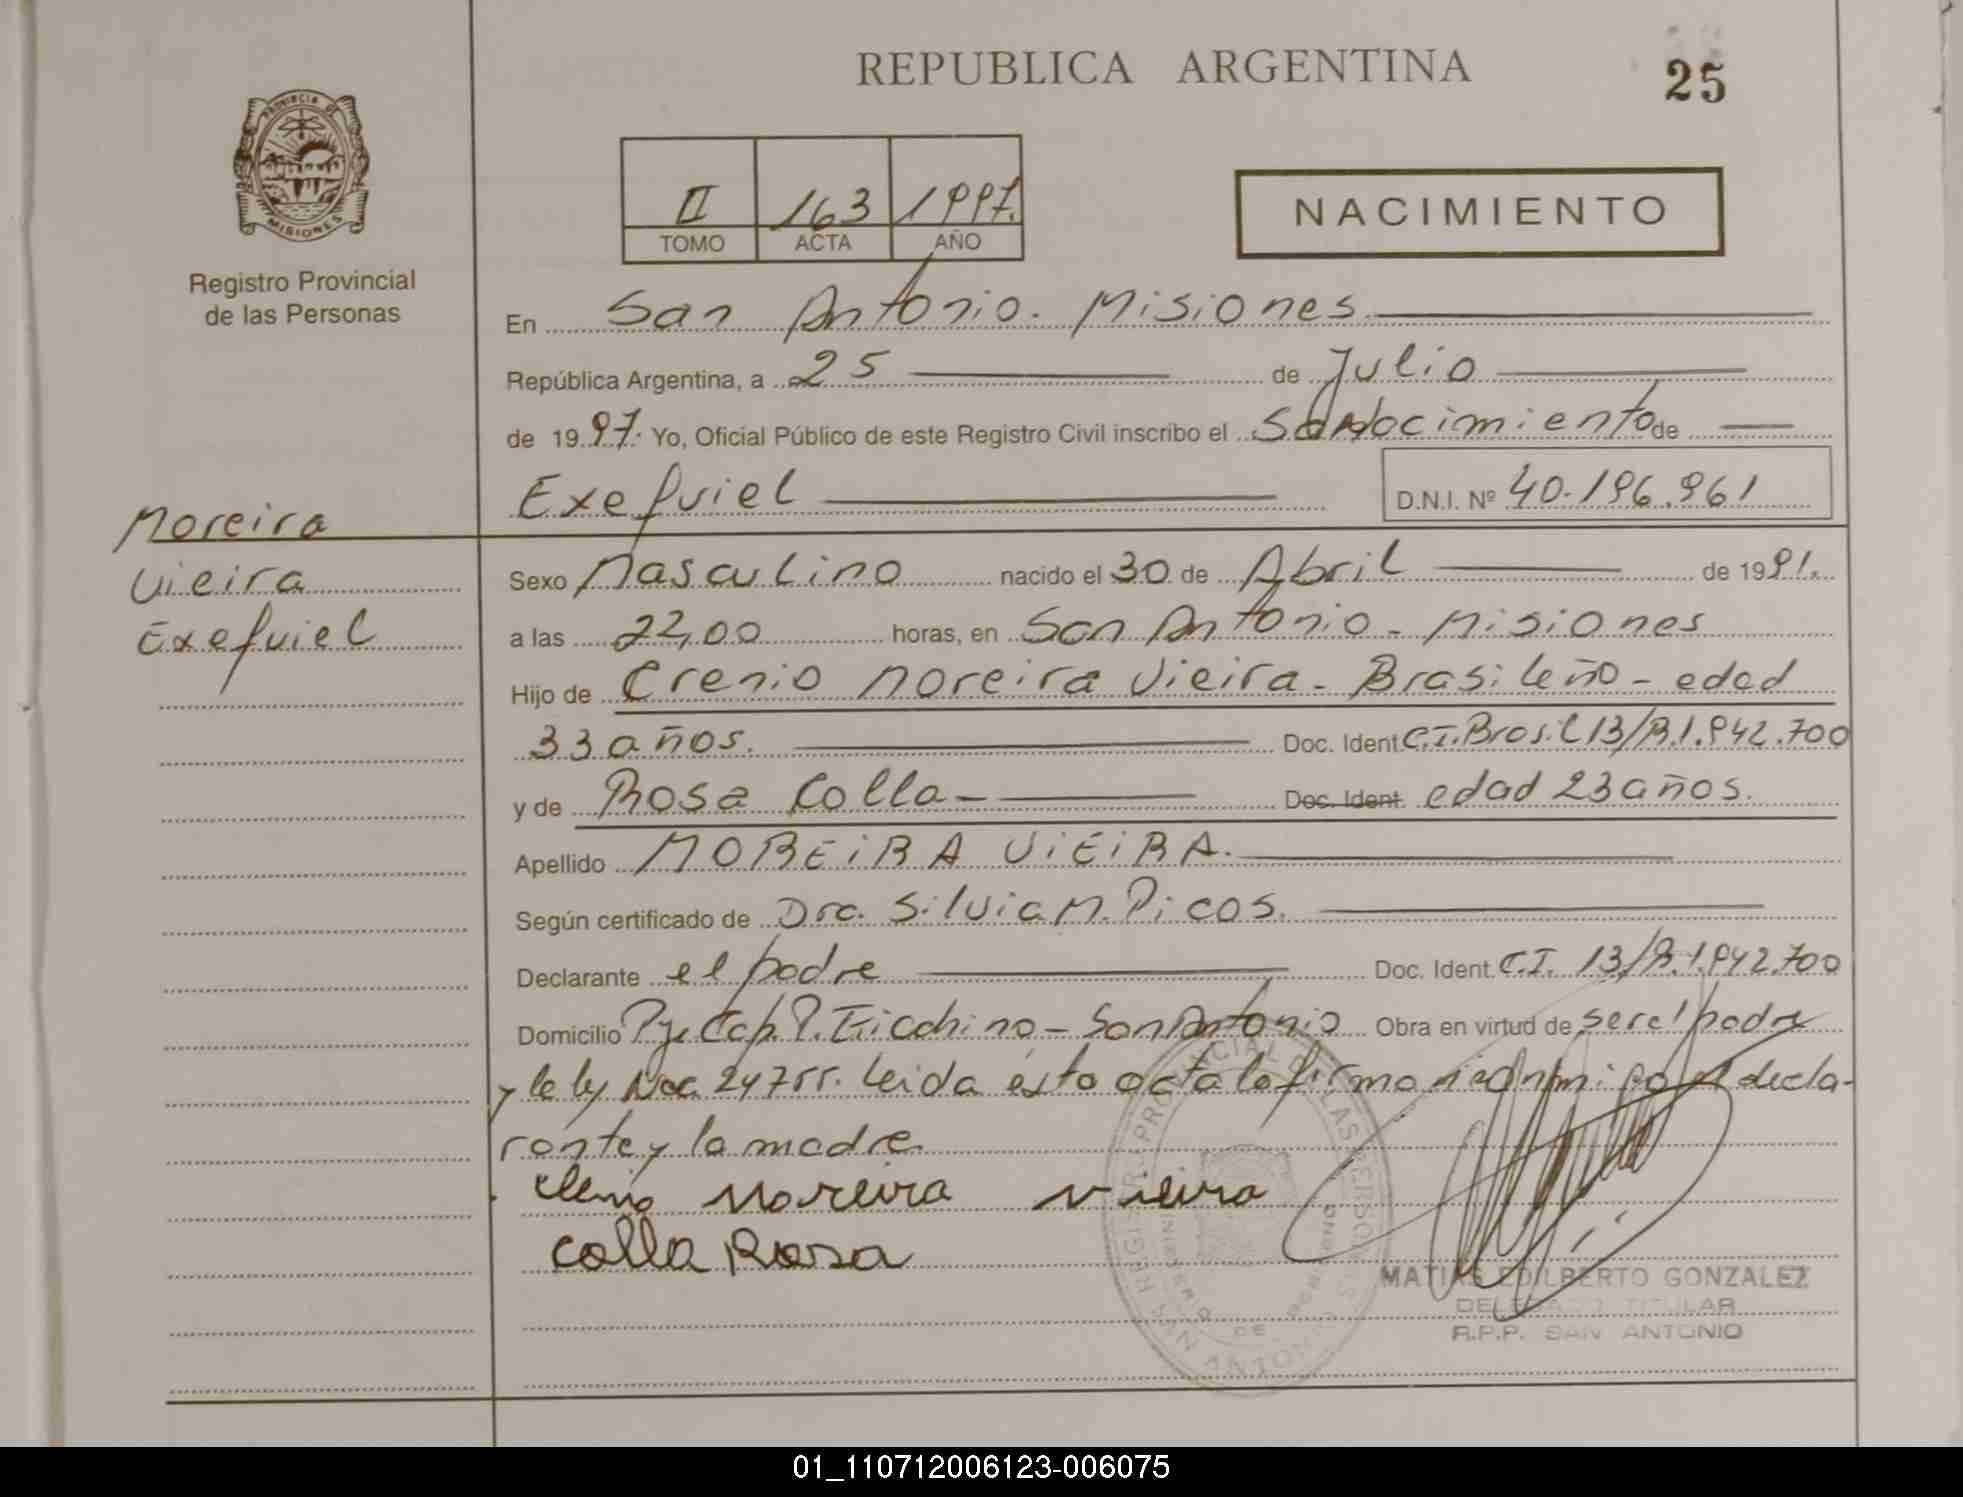 REPUBLICA ARGENTINA
25
PROVINCIA DE MISIONES
Registro Provincial
de las Personas
II 163 1997.
TOMO ACTA AÑO
NACIMIENTO
En San Antonio. Misiones
República Argentina, a 25 de Julio
de 1997. Yo, Oficial Público de este Registro Civil inscribo el de
Exequiel D.N.I. Nº 40.196.961
Moreira
Vieira
Exequiel
Sexo Masculino nacido el 30 de Abril de 1991.
a las 22,00 horas, en San Antonio - Misiones
Hijo de Crenio Moreira Vieira - Brasileño - edad
33 años. Doc. Ident C.I. Brasil 13/R.1.942.700
y de Rosa Colla - Doc. Ident. edad 23 años.
Apellido MOREIRA VIEIRA.
Según certificado de Dra. Silvia M. Picos.
Declarante el padre Doc. Ident. C.I. 13/R.1.942.700
Domicilio San Antonio Obra en virtud de ser el padre
y la ley 24755. Leida esta acta la firma el decla-
rante y la madre.
Moreira Vieira
Colla Rosa
REGISTRO PROVINCIAL DE LAS PERSONAS
SAN ANTONIO
MATIAS EDILBERTO GONZALEZ
DELEGADO TITULAR
R.P.P. SAN ANTONIO
01_110712006123-006075